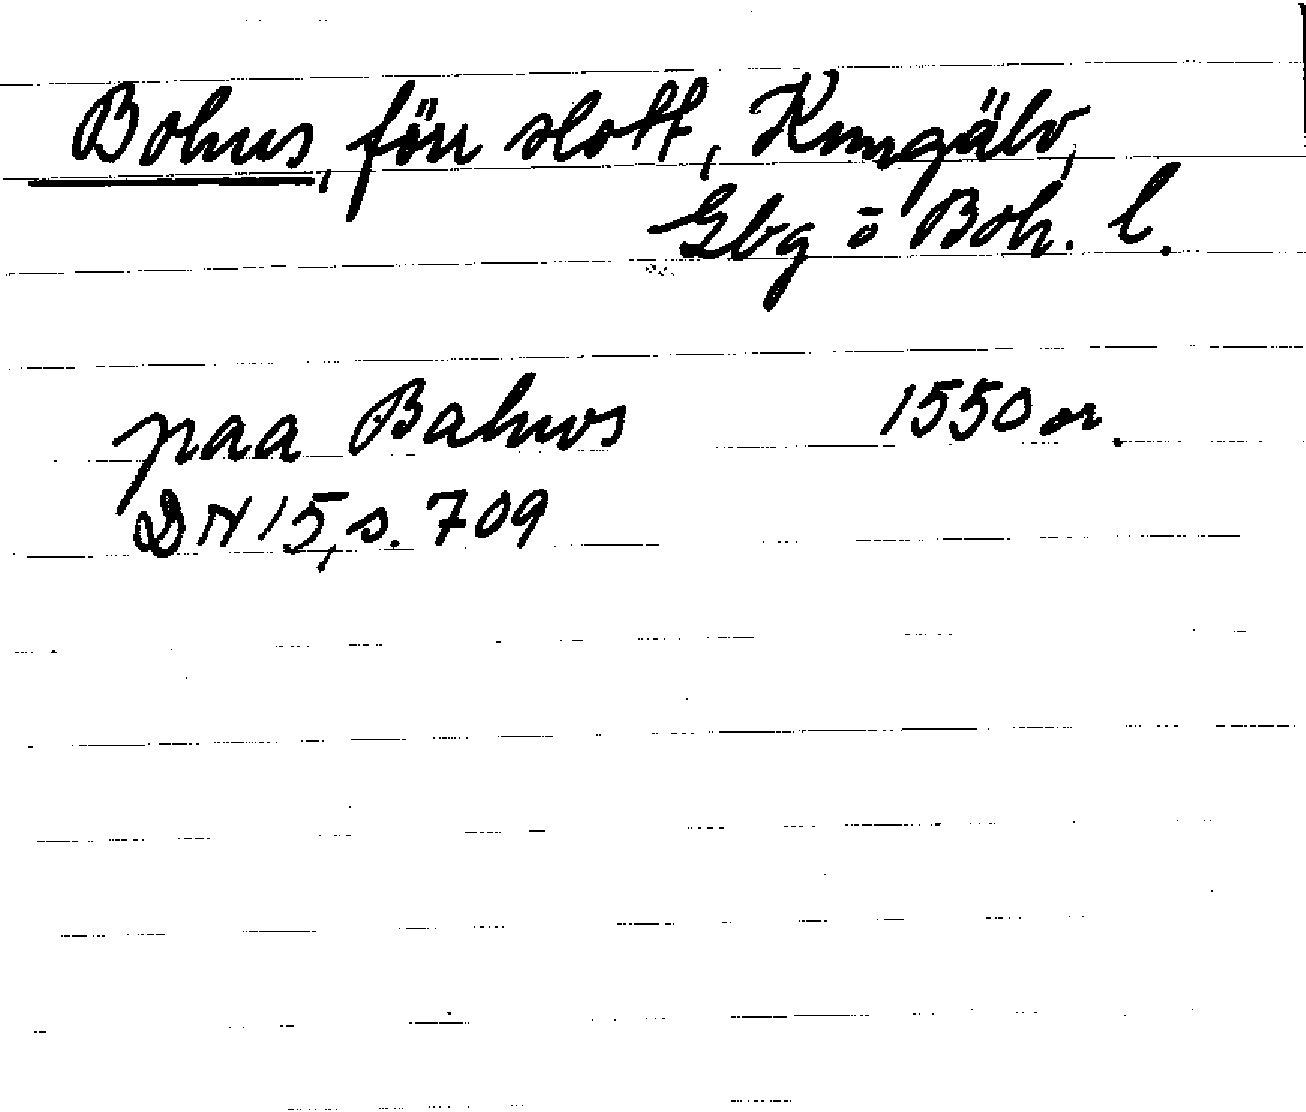 Bohus, förr slott, Kungälv,
Gbg o Boh. l.
paa Bahws 1550 or.
DN 15, s. 709